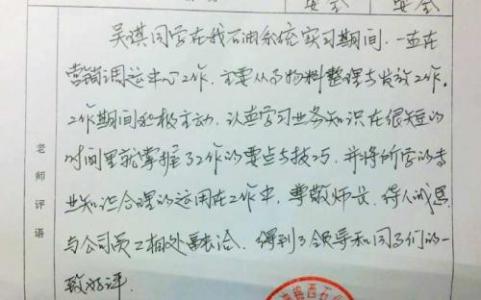 安全 安全
吴琪同学在我石油系统实习期间,一直在
营销调运中心工作,主要从事物料整理与发放工作。
工作期间积极主动,认真学习业务知识在很短的
时间里就掌握了工作的要点与技巧,并将所学的专
业知识合理的运用在工作中,尊敬师长,待人诚恳
与公司员工相处融洽,得到了领导和同事们的一
致好评.
老师评语
西石